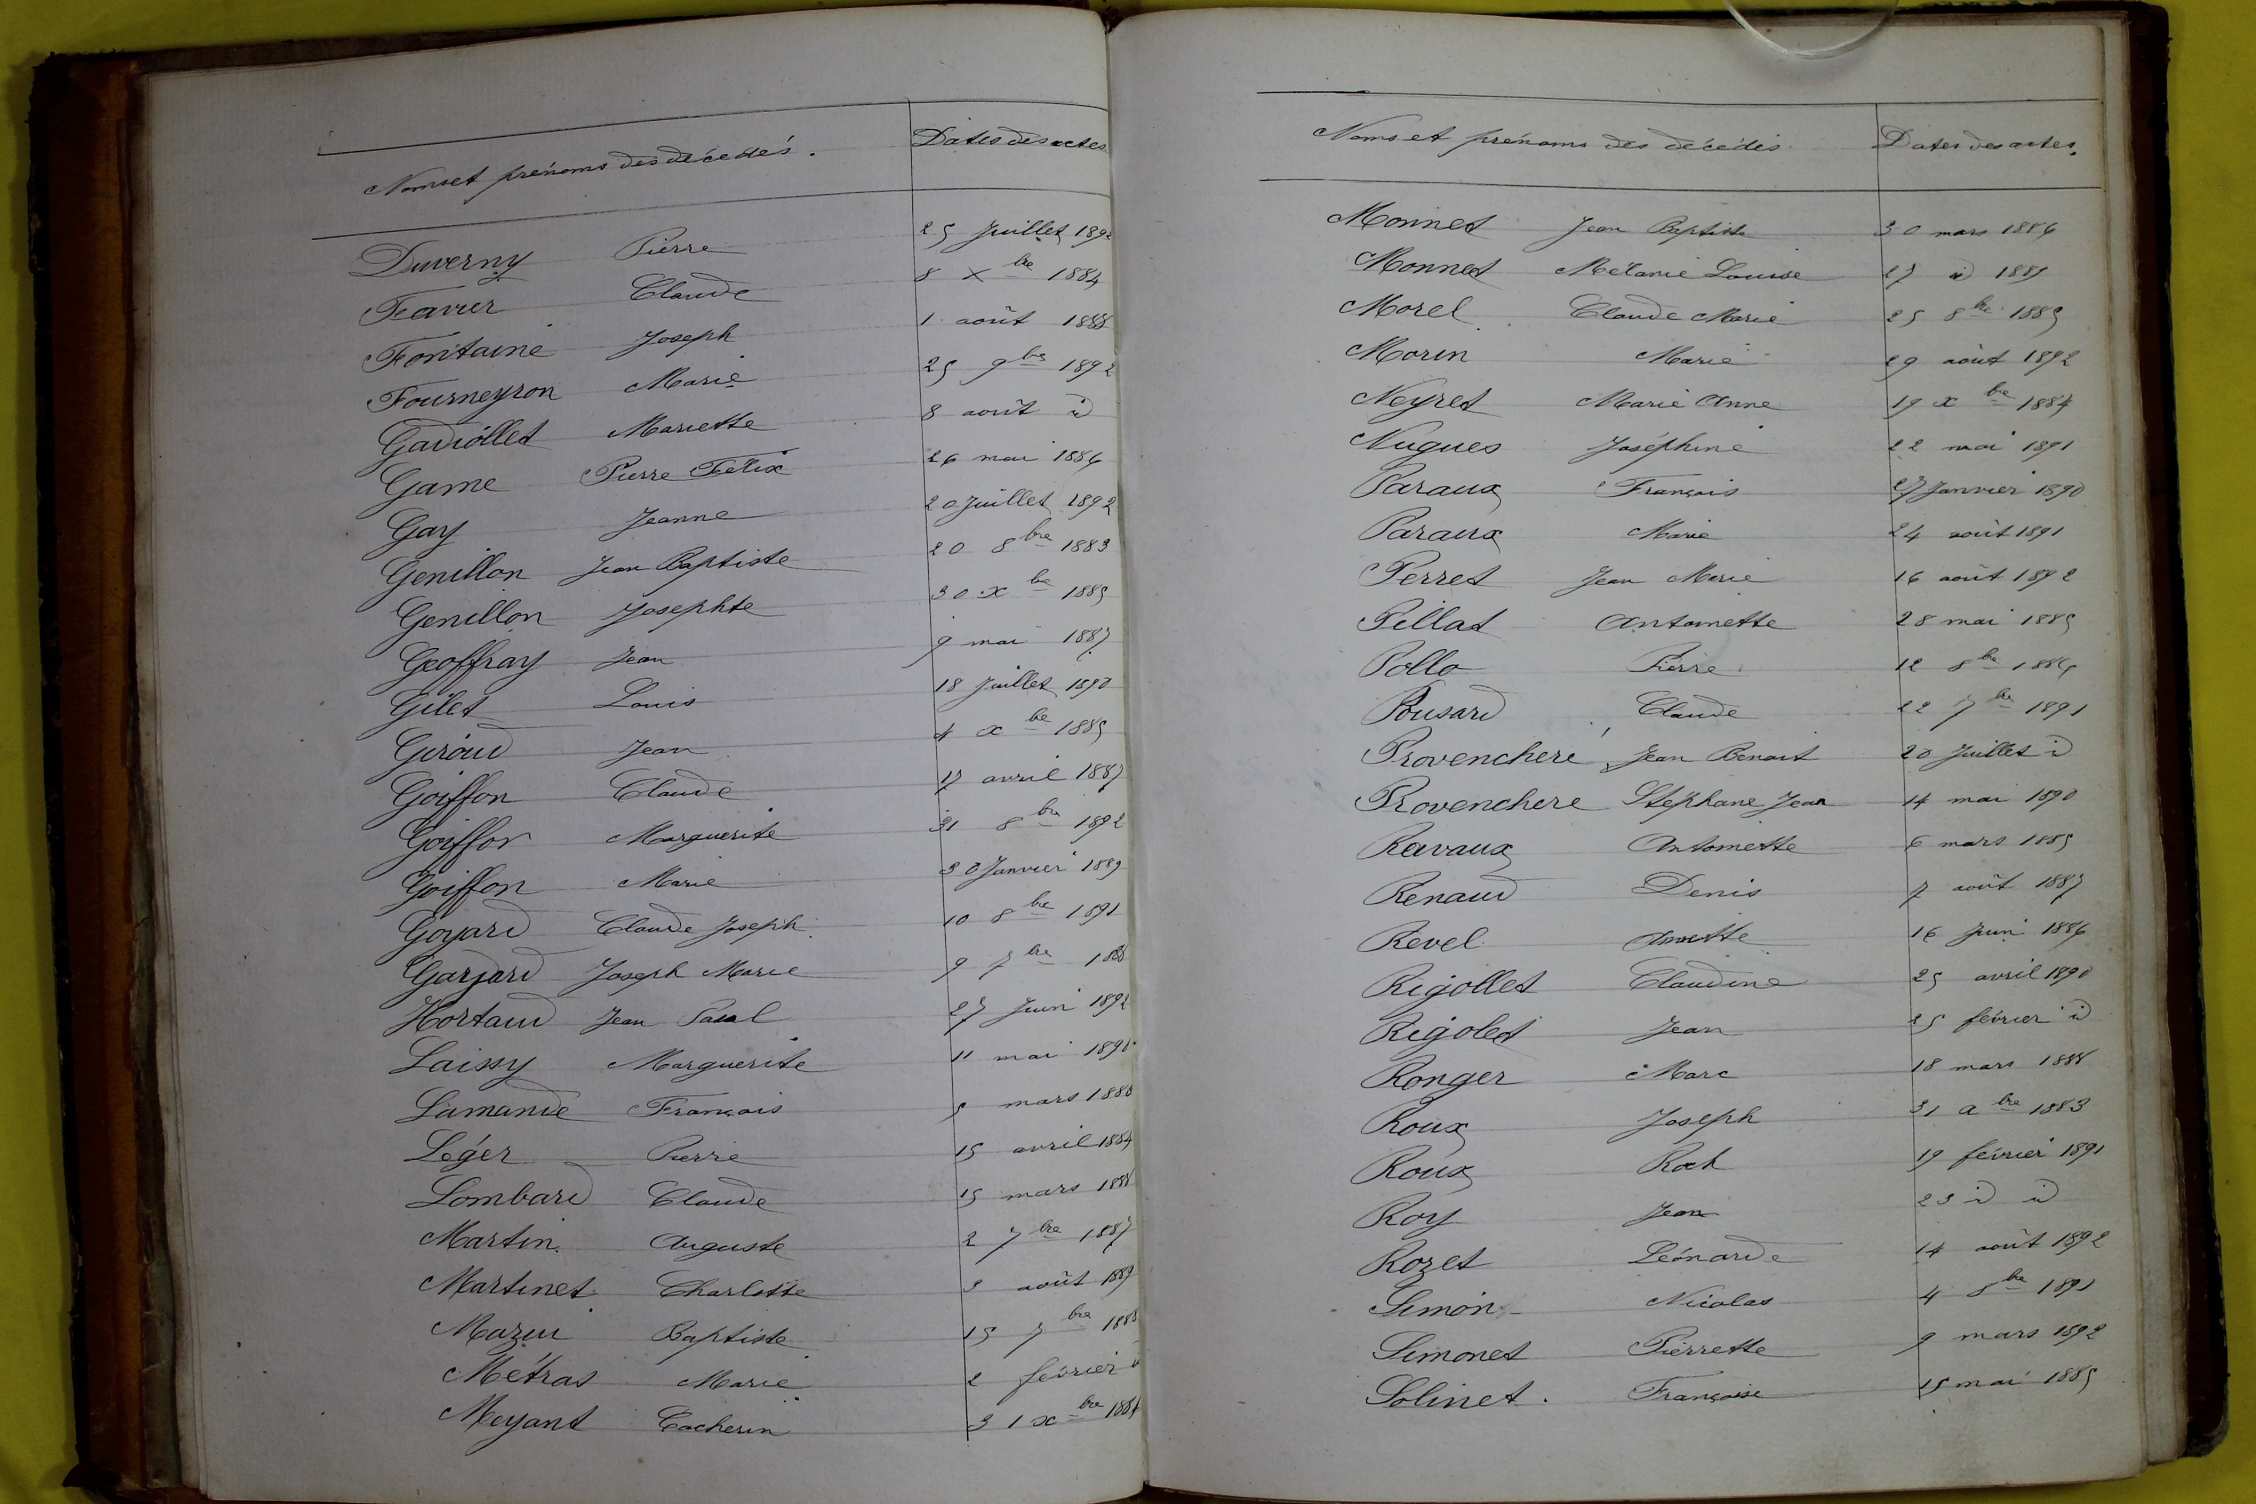 Noms et prénoms des décédés. Dates des actes
Duverny Pierre 25 Juillet 1892
Favier Claude 8 Xbre 1884
Fontaine Joseph 1 août 1888
Fourneyron Marie 25 9bre 1892
Gadiollet Mariette 8 août id
Game Pierre Félix 26 mai 1886
Gay Jeanne 20 Juillet 1892
Genillon Jean Baptiste 20 8bre 1883
Genillon Josephte 30 xbre 1885
Geoffray Jean 9 mai 1887
Gilet Louis 18 Juillet 1890
Giroud Jean 4 xbre 1885
Goiffon Claude 17 avril 1887
Goiffon Marguerite 31 8bre 1892
Goiffon Marie 30 Janvier 1889
Goyard Claude Joseph 10 8bre 1891
Garjard Joseph Marie 9 7bre
Hortaud Jean Paul 27 Juin 1892
Laissy Marguerite 11 mai
Lamande François 5 mars 1888
Léger Pierre 15 avril 1884
Lombard Claude 15 mars 1888
Martin Auguste 2 7bre 1887
Martinet Charlotte 3 août 1889
Mazui Baptiste 15 7bre 1888
Métras Marie 2 février id
Meyant Cacherin 31 xbre 1884
Noms et prénoms des décédés Dates des actes.
Monnet Jean Baptiste 30 mars 1886
Monnet Mélanie Louise 27 id 1885
Morel Claude Marie 25 8bre 1885
Morin Marie 29 août 1892
Neyret Marie Anne 19 xbre 1884
Nugues Joséphine 22 mai 1891
Paraux François 27 Janvier 1890
Paraux Marie 24 août 1891
Perret Jean Marie 16 août 1892
Pillat Antoinette 28 mai 1885
Pollo Pierre 12 8bre
Pousard Claude 22 7bre 1891
Provenchere Jean Benoit 20 Juillet id
Provenchere Stéphane Jean 14 mai 1890
Ravaux Antoinette 6 mars 1885
Renaud Denis 7 août 1887
Revel Annette 16 Juin 1886
Rigollet Claudine 25 avril 1890
Rigolet Jean 25 février id
Ronger Marc 18 mars 1888
Roux Joseph 31 xbre 1883
Roux Roch 19 février 1891
Roy Jean 23 id id
Rozet Léonarde 14 août 1892
Simon Nicolas 4 8bre 1891
Simonet Pierrette 9 mars 1892
Solinet. Françoise 15 mai 1885